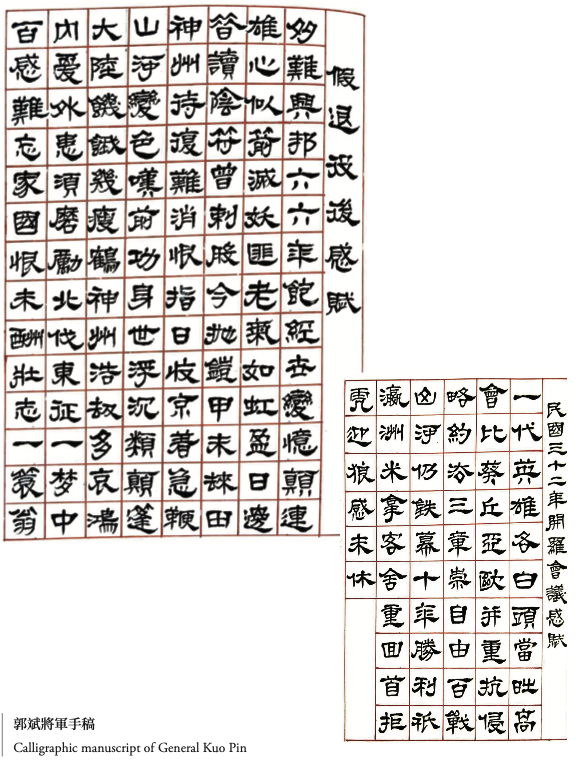 假退役後感賦
多難興邦六六年飽經世變憶顛連
雄心似箭滅妖匪老氣如虹盈日邊
昔讀陰符曾刺股今拋鎧甲未田
神州待復難消恨指日收京着急鞭
山河變色嘆前功身世浮沉類顛蓬
大陸饑餓幾瘦鶴神州浩劫多哀鴻
內憂外患須磨勵北伐東征一梦中
百感難忘家國恨未酬壯志一簑翁
民國三十二年開羅會議感賦
一代英雄各白頭當時高
會比葵丘亞歐并重抗侵
略約法三章崇自由百戰
山河仍鉄幕十年勝利祇
瀛洲米拿客舍重回首拒
虎迎狼感未休
郭斌將軍手稿
Calligraphic manuscript of General Kuo Pin